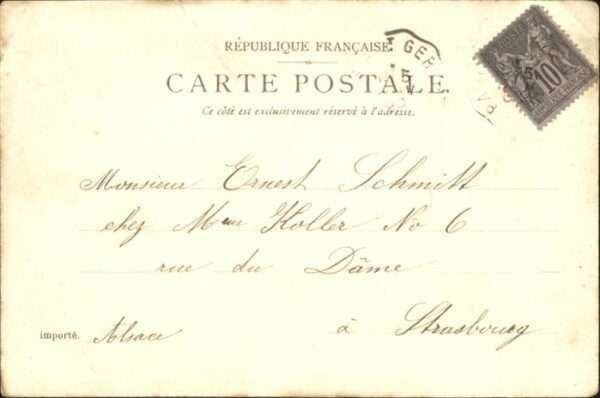 RÉPUBLIQUE FRANÇAISE
GER
5
CARTE POSTALE.
10
Ce côté est exclusivement réservé à l'adresse.
Monsieur Ernest Schmitt
chez Mme Koller No 6
rue du Dâme
à Strasbourg
importé. Alsace